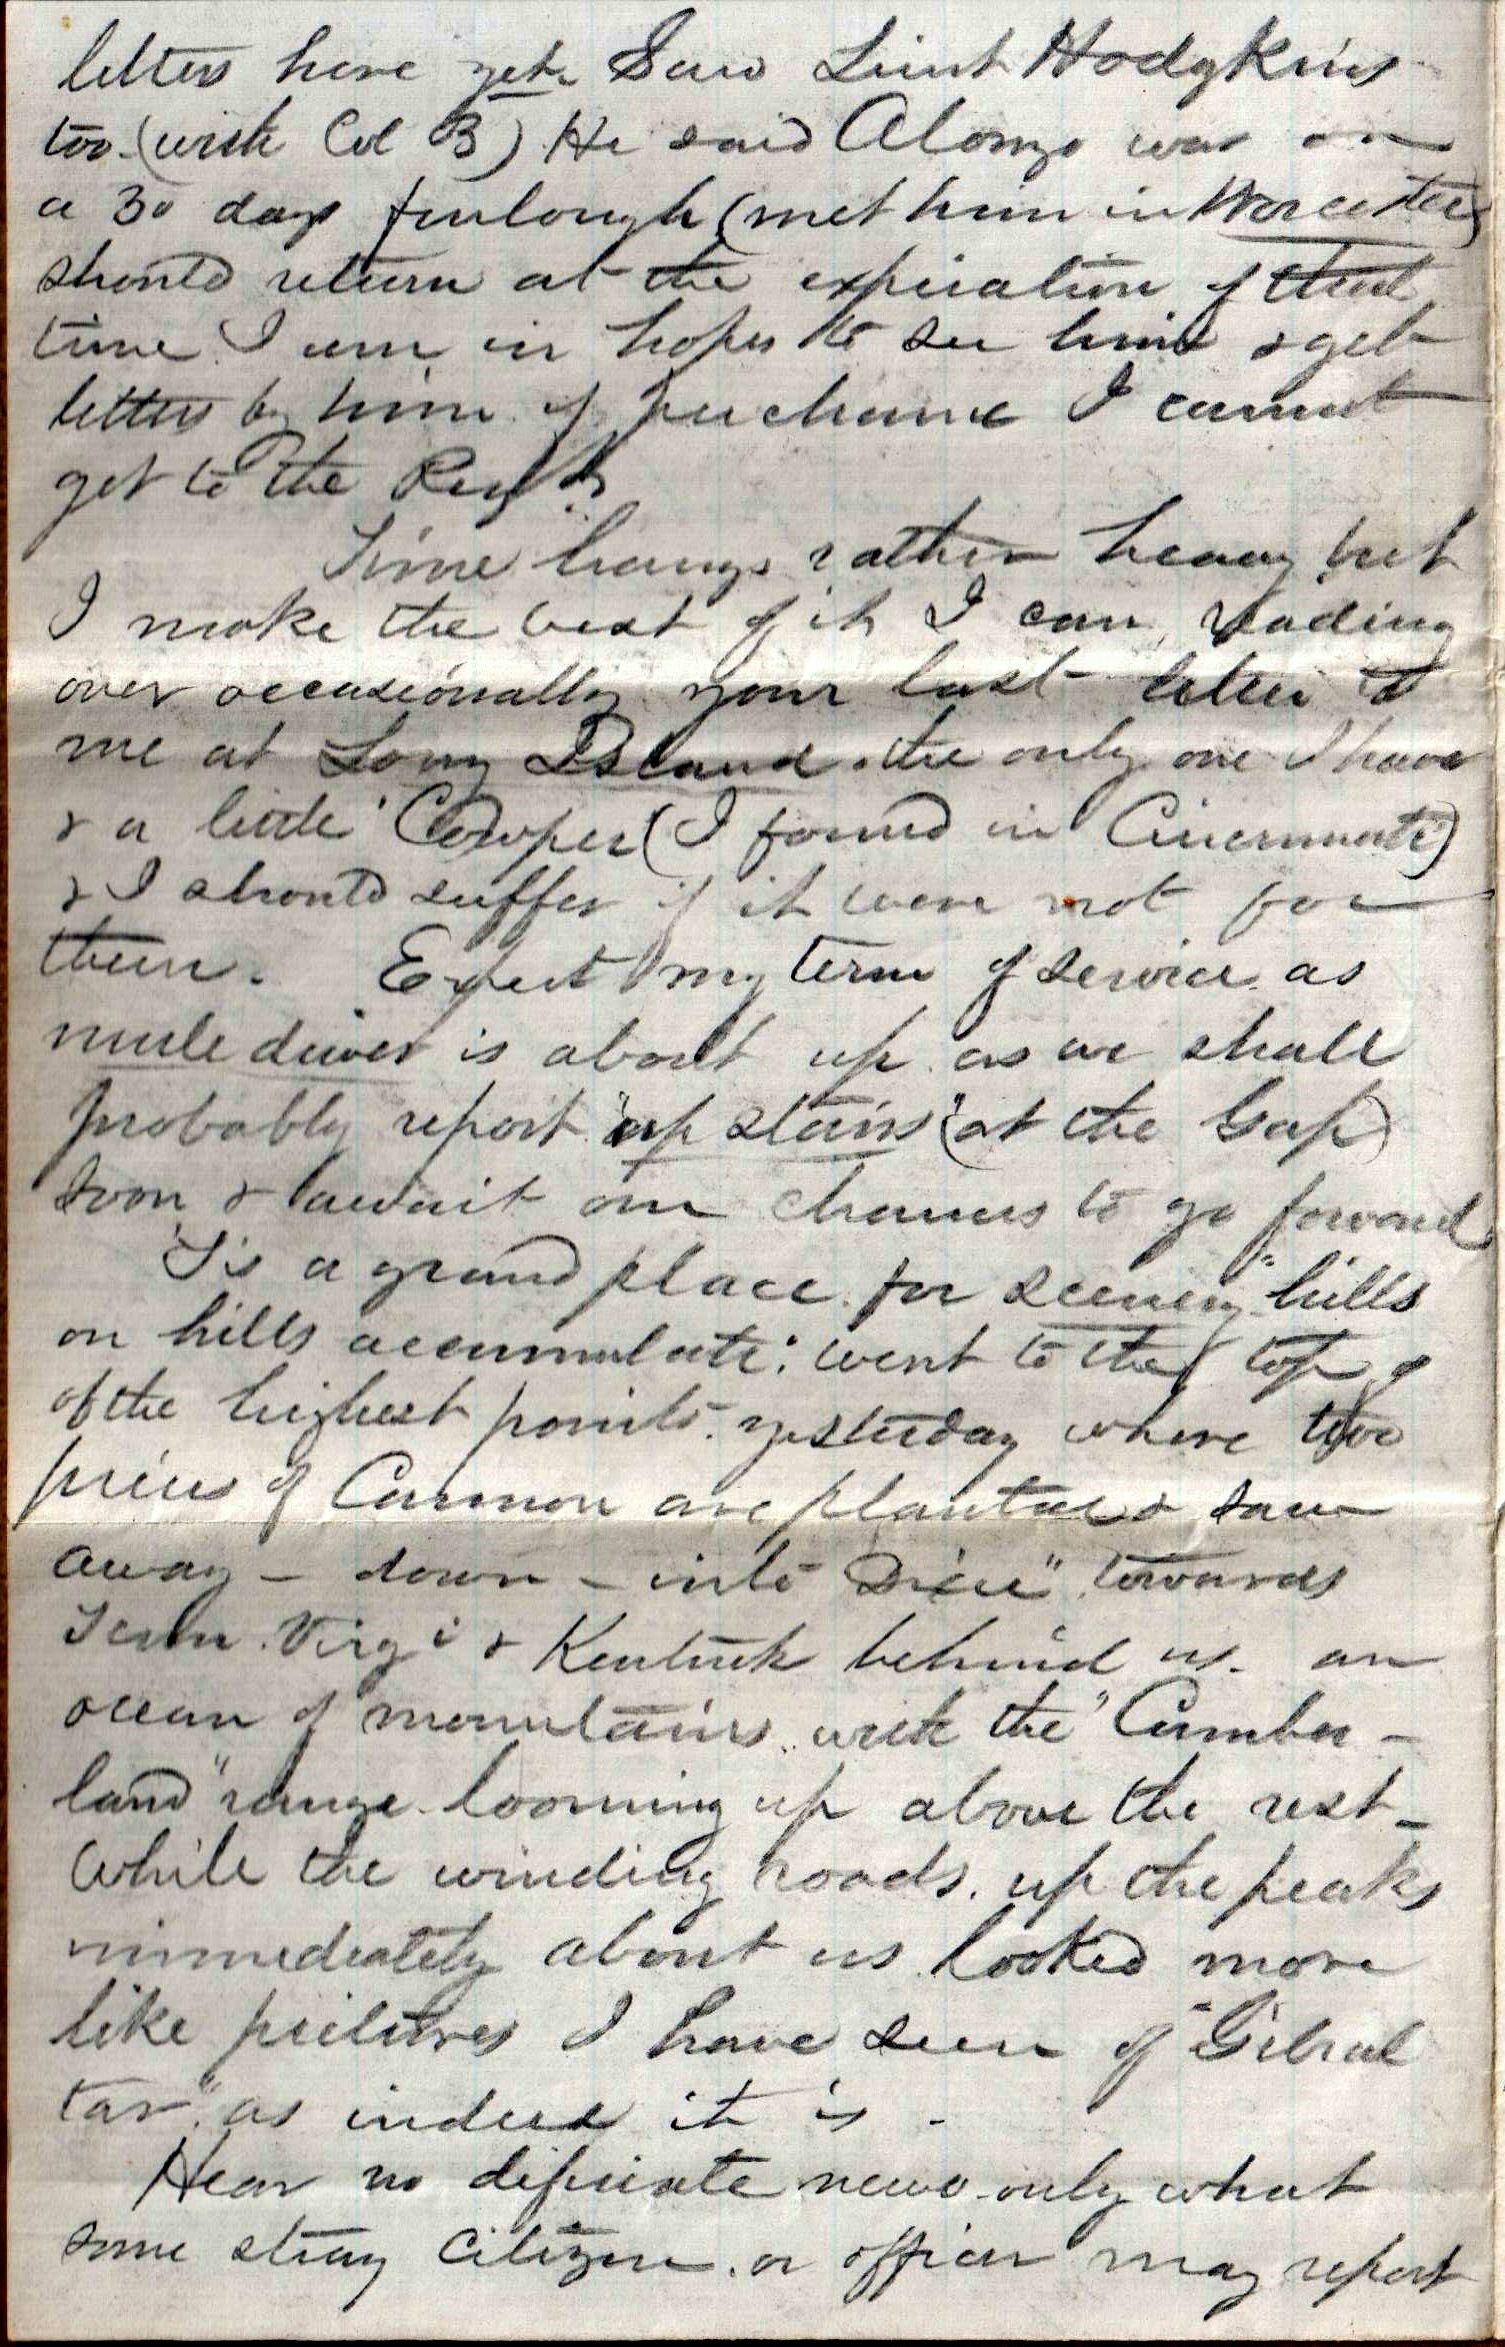 letters here yet. Saw Lieut Hodgkins
too. (with Col B) He said Alonzo was on
a 30 days furlough (met him in Worcester)
should return at the expiration of that
time. I am in hopes to see him & get
letters by him if perchance I cannot
get to the Regt.
Time hangs rather heavy but
I make the best of it I can, reading
over occasionally your last letter to
me at Long Island. the only one I have
& a little "Cowper (I found in Cincinnati)
& I should suffer if it were not for
them. Expect my term of service as
mule driver is about up. as we shall
probably report "up stairs" (at the Gap)
soon & await our chances to go forward
'Tis a grand place for scenery "hills
on hills accumulate: went to the top
of the highest points. yesterday where two
pieces of Cannon are planted & saw
away - down - into Dixie" towards
Tenn. Virgi & Kentuck behind us. an
ocean of mountains. with the "Cumber-
land" range looming up above the rest -
While the winding roads. up the peaks
immediately about us looked more
like pictures I have seen of "Gibral
tar". as indeed it is -
Hear no difinite news only what
some stray Citizen. or officer may report